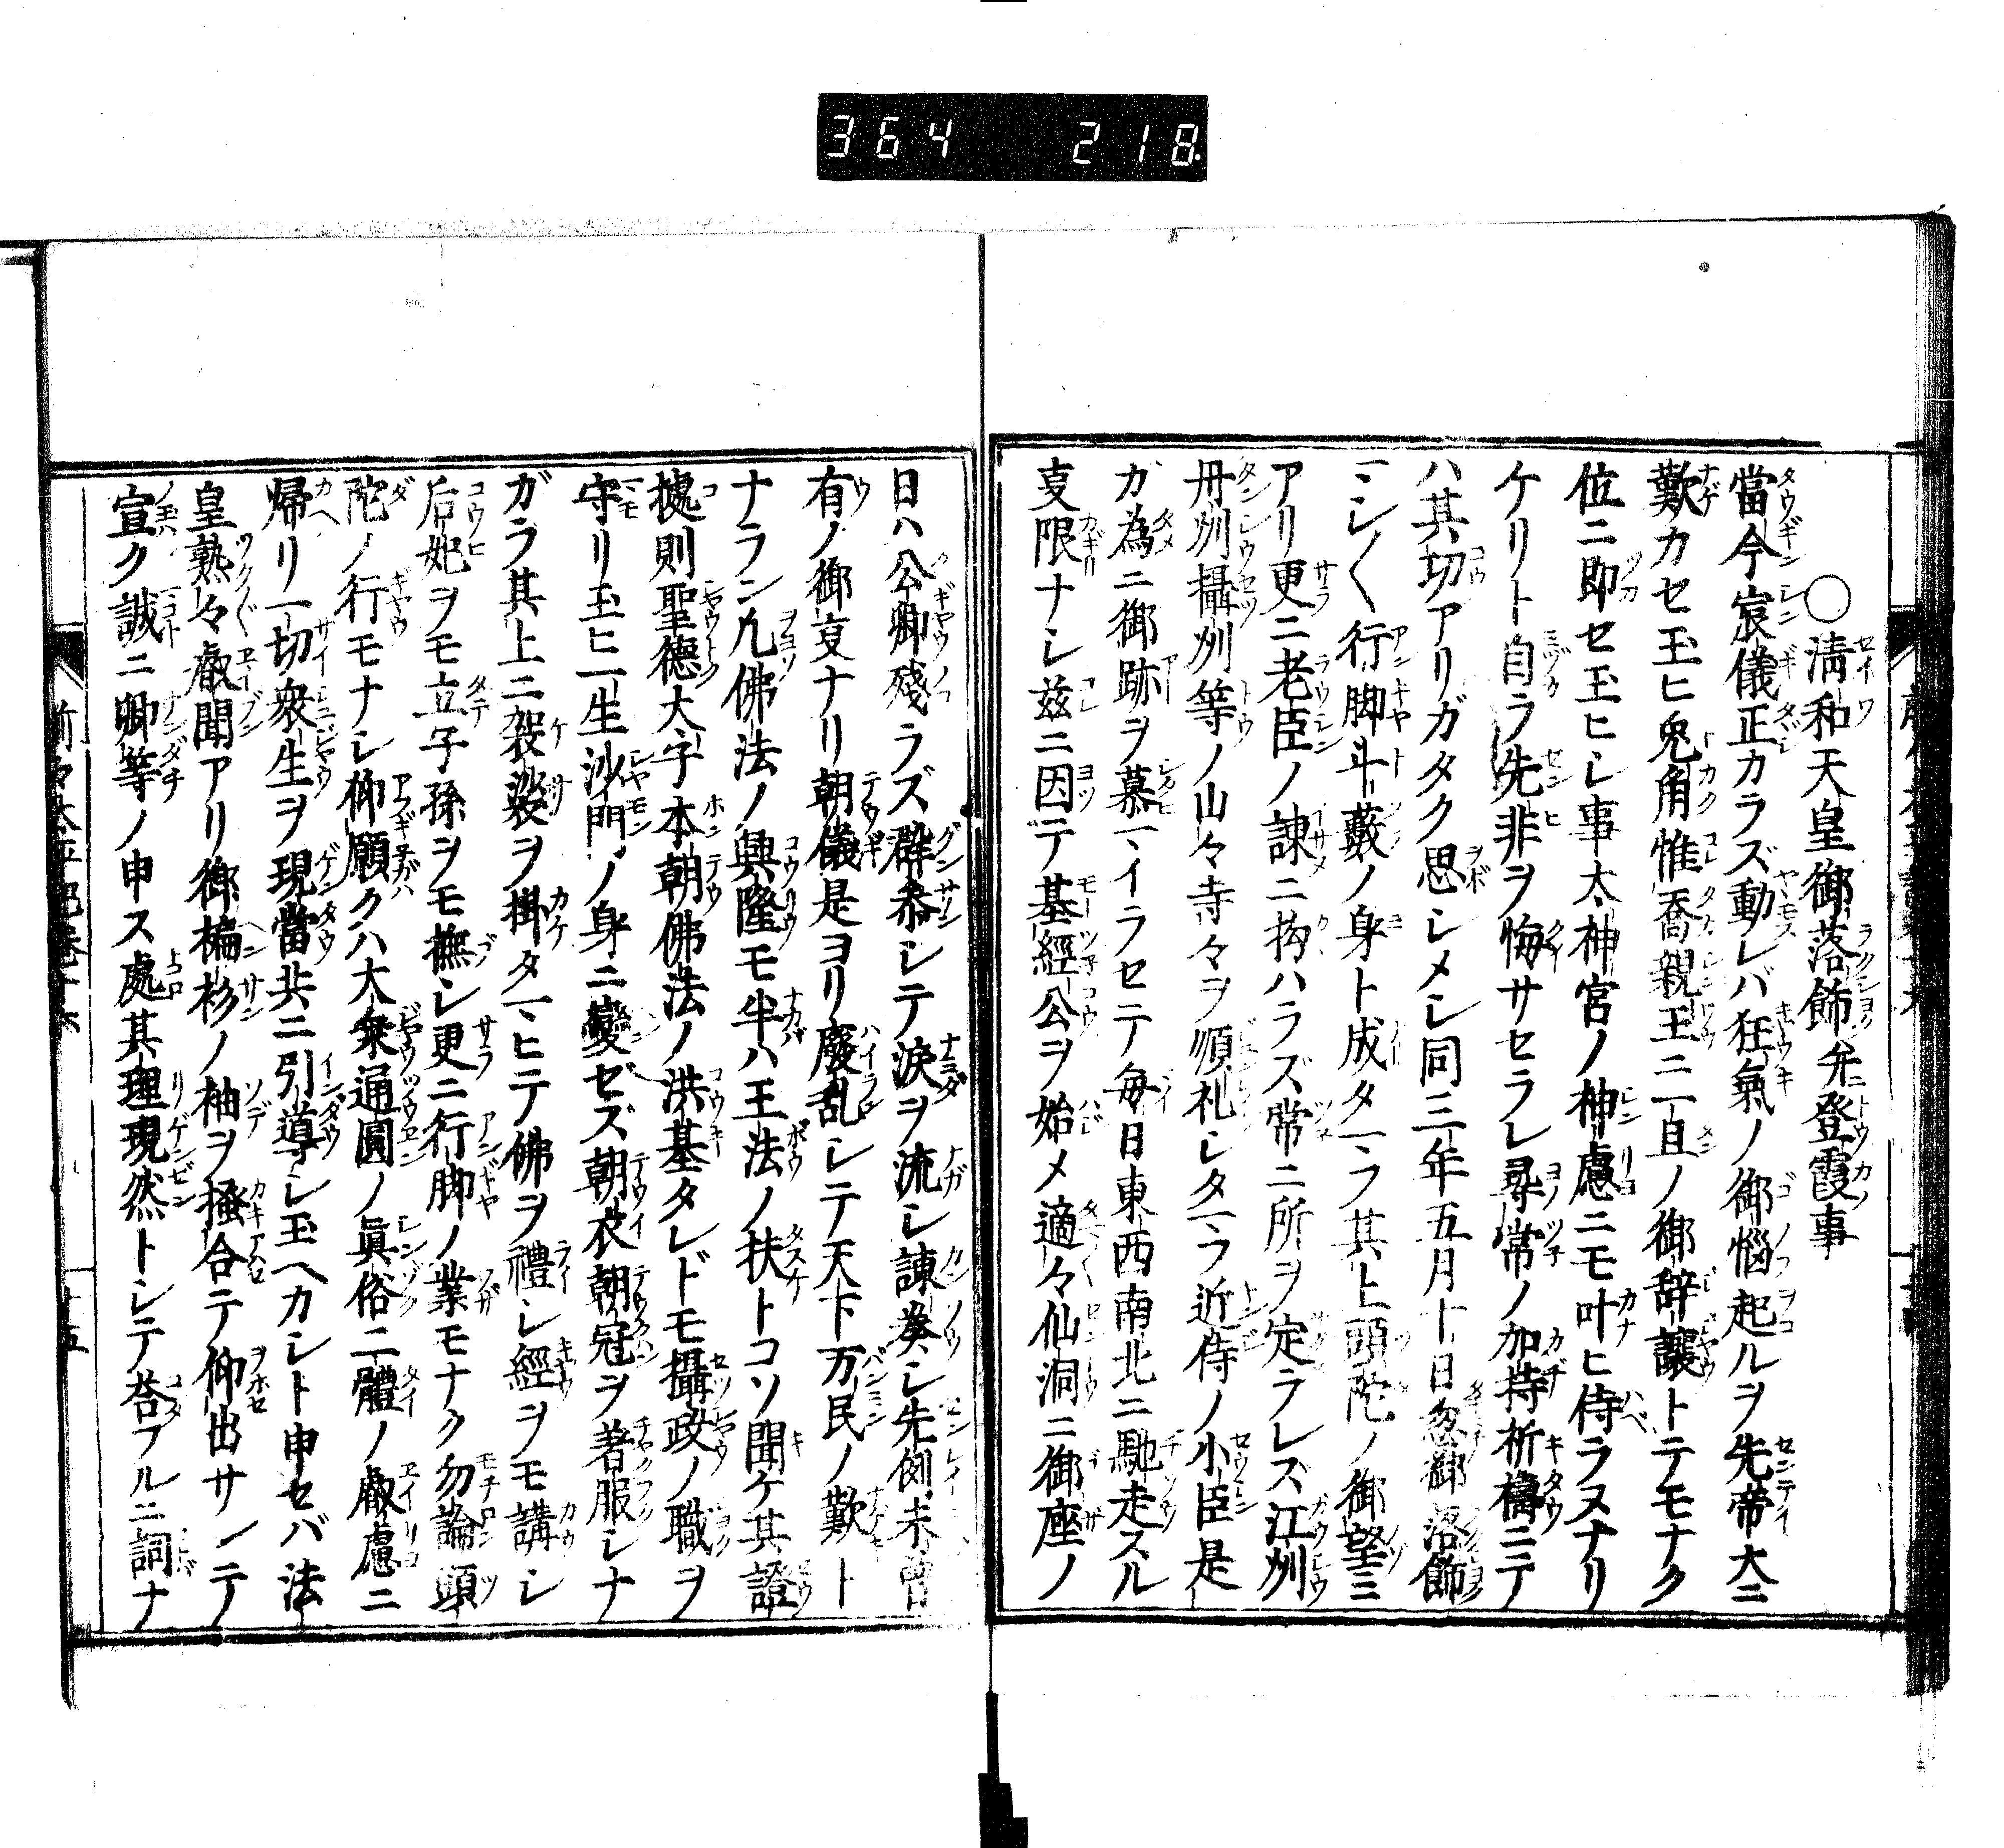 364 218
○清和天皇御落飾并登霞事
當今宸儀正カラズ動レバ狂氣ノ御惱起ルヲ先帝大ニ
歎カセ玉ヒ兎角惟喬親王ニ一旦ノ御辞讓トテモナク
位ニ即セ玉ヒシ事太神宮ノ神慮ニモ叶ヒ侍ラヌナリ
ケリト自ラ先非ヲ悔サセラレ尋常ノ加持祈禱ニテ
ハ其切アリガタク思シメシ同三年五月十日忽御落飾
マシ〱行脚斗藪ノ身ト成タマフ其上頭陀ノ御望ミ
アリ更ニ老臣ノ諌ニ拘ハラズ常ニ所ヲ定ラレス江州
丹州攝州等ノ山々寺々ヲ順礼シタマフ近侍ノ小臣是
カ為ニ御跡ヲ慕マイラセテ毎日東西南北ニ馳走スル
叓限ナシ兹ニ因テ基經公ヲ始メ適々仙洞ニ御座ノ
日ハ公卿殘ラズ群参シテ淚ヲ流シ諌奏シ先例未曽
有ノ御叓ナリ朝儀是ヨリ廢乱シテ天下万民ノ歎ト
ナラン凡佛法ノ興隆モ半ハ王法ノ扶トコソ聞ケ其證
據則聖德大子本朝佛法ノ洪基タレドモ攝政ノ職ヲ
守リ玉ヒ一生沙門ノ身ニ變セズ朝衣朝冠ヲ著服シナ
ガラ其上ニ袈裟ヲ掛タマヒテ佛ヲ禮シ經ヲモ講シ
后妃ヲモ立子孫ヲモ撫シ更ニ行脚ノ業モナク勿論頭
陀ノ行モナシ仰願クハ大衆通圓ノ眞俗二體ノ叡慮ニ
帰リ一切衆生ヲ現當共ニ引導シ玉ヘカシト申セバ法
皇熟々叡聞アリ御褊衫ノ袖ヲ搔合テ仰出サンテノ
宣ク誠ニ卿等ノ申ス處其理現然トシテ荅フルニ詞ナ